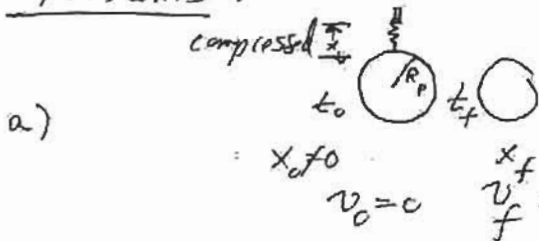 compressed x
R_p
t_0 t_f
a)
: x_0 ≠ 0 x_f
v_0 = 0 v_f